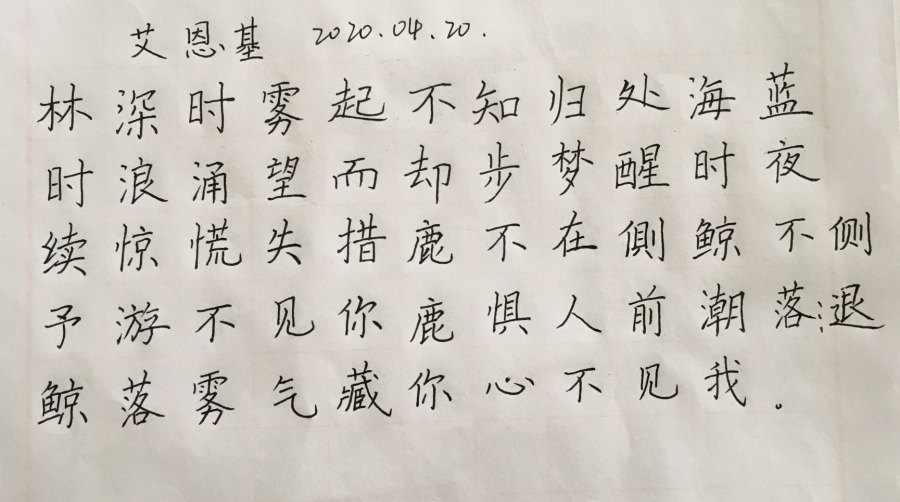 艾恩基 2020.04.20.
林深时雾起不知归处海蓝
时浪涌望而却步梦醒时夜
续惊慌失措鹿不在側鲸不侧
予游不见你鹿惧人前潮落退
鲸落雾气藏你心不见我。